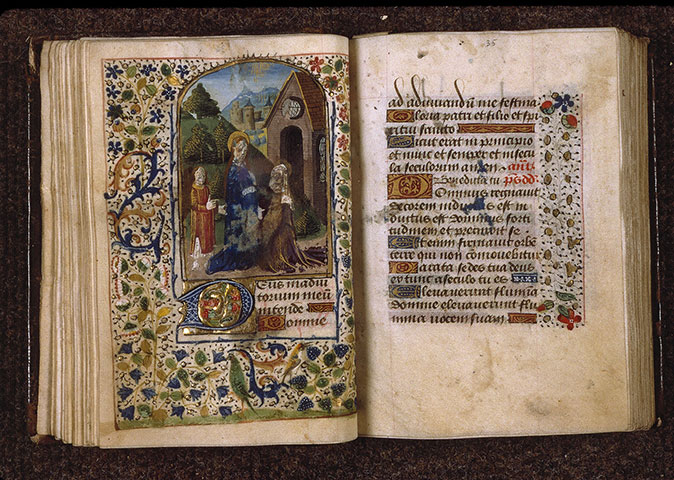 Deus in adiu
torium meū
intende
Domine
35
ad adiuvandū me festina
Gloria patri et filio et spi
ritui sancto
Sicut erat in principio
et nunc et semper et in secu
la seculorum amen. antē
Benedicta tu psꝰ dd
Dominus regnavit
decorem indutus est in
dutus est dominus forti
tudinem et precinxit se
Etenim firmavit orbē
terre qui non commovebitur
Parata sedes tua deus
ex tunc a seculo tu es
Elevaverunt flumina
domine elevaverunt flu
mina vocem suam